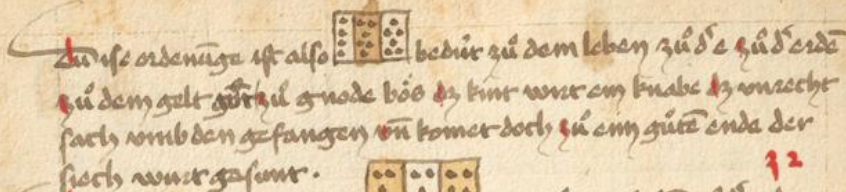 Dis ist ordenūge ist also bedút zů dem leben zů dˢ e zů dˢ erdē
zů dem gelt gůt zů gnode bös dz kint wirt ein knabe dz vnrecht
sach vmb den gefangen vn̄ komet doch zů eim gůtē ende der
siech wurt gesunt .
32